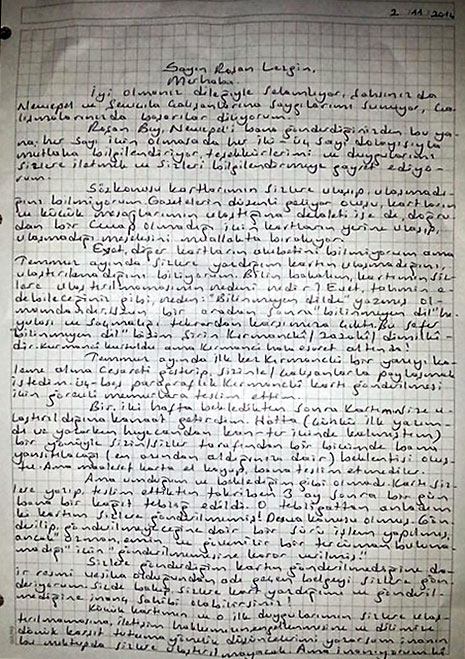 2/11/2014
Sayın Roşan Lezgin,
Merhaba.
İyi olmanız dileğiyle selamlıyor, şahsınızda
Newepel ve Şewçıla çalışanlarına saygılarımı sunuyor, ça-
lışmalarınızda başarılar diliyorum.
Roşan Bey, Newepel'i bana gönderdiğinizden bu ya-
na, her sayı için olmasada her iki-üç sayı dolayısıyla
mutlaka bilgilendiriyor, teşekkürlerimi ve duygularımı
sizlere iletmek ve sizleri bilgilendirmeye gayret ediyo-
rum.
Sözkonusu kartlarımın sizlere ulaşıp, ulaşmadı-
ğını bilmiyorum. Gazetelerin düzenli geliyor oluşu, kartların
ve küçük mesajlarımın ulaştığına delaleti ise de, doğru-
dan bir cevap olmadığı için kartların yerine ulaşıp,
ulaşmadığı meselesini muallakta bırakıyor.
Evet, diğer kartların akıbetini bilmiyorum ama
Temmuz ayında, sizlere yazdığım kartın ulaşmadığını,
ulaştırılmadığını biliyorum. Bilin bakalım, kartımın siz-
lere ulaştırılmamasının nedeni nedir? Evet, tahmin e-
debileceğiniz gibi, neden: "Bilinmeyen dilde" yazmış ol-
mamdandır. Uzun bir aradan sonra "bilinmeyen dil" he-
yulası ve saçmalığı tekrardan karşımıza çıktı. Bu sefer
bilinmeyen dil bizim şirin Kırmancki/zazaki/dımılki'
dir. Kurmanci kurtuldu ama Kırmancki
Temmuz ayında ilk kez Kırmancki bir yazıyı ka-
leme alma cesareti gösterip, sizinle/çalışanlarla paylaşmak
istedim. üç-beş paragraflık Kırmancki kartı gönderilmesi
için görevli memurlara teslim ettim.
Bir, iki hafta bekledikten sonra kartımın size u-
laştırıldığına kanaat getirdim. Hatta (çünkü ilk yazım-
dı ve yazarkenki heyecandan kanter içinde kalmıştım)
bir yönüyle sizin/sizler tarafından bir biçimde bana
yanıtlacağı (en azından aldığınıza dair) beklentisi oluş-
tu. Ama maalesef karta el koyup, bana teslim etmediler.
Ama umduğum ve beklediğim gibi olmadı. Kartı siz-
lere yazıp, teslim ettikten takriben 3 ay sonra bir gün
bana bir kağıt tebliğ edildi. O tebligattan anladım
ki kartım sizlere gönderilmemiş! Dava konusu olmuş. Gön-
derilip, gönderilmeyeceğine dair bir sürü işlem yapılmış,
ancak "uzman, emin ve güvenilir bir tercüman bulunа-
madığı" için "gönderilmemesine karar verilmiş."
Sizlere gönderdiğim kartın gönderilmediğine da-
ir resmi vesika olduğundan adı geçen belgeyi sizlere gön-
deriyorum. Sizde bakıp, sizlere kart yazdığıma ve gönderil-
mediğine inanç sahibi olabilirsiniz!
Konuk kartımın ve o ilk duygularımın sizlere ulaş-
tırılmamasına, iletişim hakkımın engellenmesine ve dilimize
dönük karşıt tutuma yönelik düşüncelerimi yazarsam inanın
bu mektupda sizlere ulaştırılmayacak. Ama inanıyorum ki